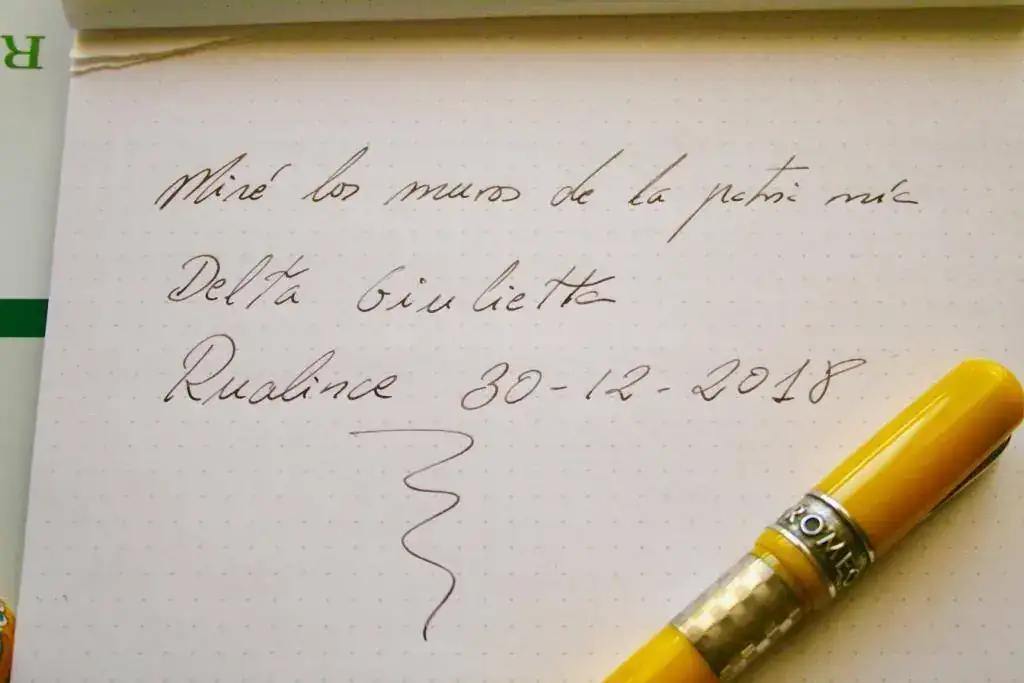 R
Miré los muros de la patria mía
Delta Giulietta
Rualince 30-12-2018
ROMEO